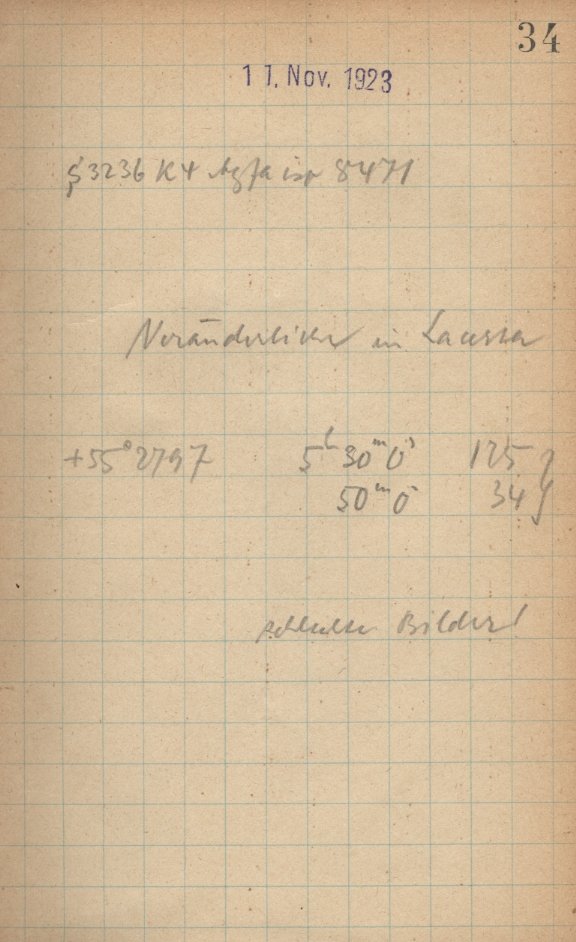 34
11. Nov. 1923
S 3236 K4 Agfa iso 8471
Veränderlicher in Lacerta
+55° 2797 5h 30m 0s 125
50m 0s 34
schlechte Bilder!